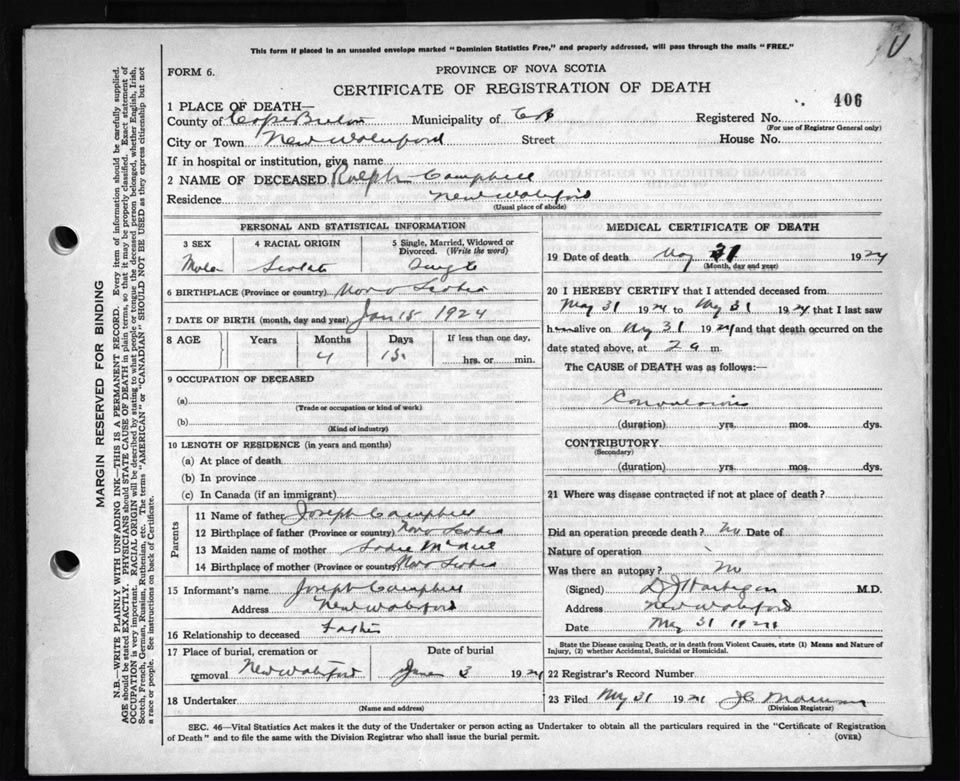 This form if placed in an unsealed envelope marked "Dominion Statistics Free," and properly addressed, will pass through the mails "FREE."
FORM 6. PROVINCE OF NOVA SCOTIA
CERTIFICATE OF REGISTRATION OF DEATH
406
1 PLACE OF DEATH—
County of Cape Breton Municipality of CB Registered No.
(For use of Registrar General only)
City or Town New Waterford Street House No.
If in hospital or institution, give name
2 NAME OF DECEASED Ralph Campbell
Residence New Waterford
(Usual place of abode)
PERSONAL AND STATISTICAL INFORMATION
3 SEX 4 RACIAL ORIGIN 5 Single, Married, Widowed or Divorced. (Write the word)
Male Scotch Single
6 BIRTHPLACE (Province or country) Nova Scotia
7 DATE OF BIRTH (month, day and year) Jan 15 1924
8 AGE Years Months Days If less than one day,
4 15 hrs. or min.
9 OCCUPATION OF DECEASED
(a)
(Trade or occupation or kind of work)
(b)
(Kind of industry)
10 LENGTH OF RESIDENCE (in years and months)
(a) At place of death
(b) In province
(c) In Canada (if an immigrant)
Parents
11 Name of father Joseph Campbell
12 Birthplace of father (Province or country) Nova Scotia
13 Maiden name of mother Sadie McNeil
14 Birthplace of mother (Province or country) Nova Scotia
15 Informant's name Joseph Campbell
Address New Waterford
16 Relationship to deceased Father
17 Place of burial, cremation or removal Date of burial
New Waterford June 3 1924
18 Undertaker
(Name and address)
MEDICAL CERTIFICATE OF DEATH
19 Date of death May 31 1924
(Month, day and year)
20 I HEREBY CERTIFY that I attended deceased from
May 31 1924 to May 31 1924 that I last saw
him alive on May 31 1924 and that death occurred on the
date stated above, at 2 a m.
The CAUSE of DEATH was as follows:—
Convulsions
(duration) yrs. mos. dys.
CONTRIBUTORY
(Secondary)
(duration) yrs. mos. dys.
21 Where was disease contracted if not at place of death?
Did an operation precede death? No Date of
Nature of operation
Was there an autopsy? No
(Signed) D J Hartigan M.D.
Address New Waterford
Date May 31 1924
State the Disease causing Death, or in death from Violent Causes, state (1) Means and Nature of
Injury, (2) whether Accidental, Suicidal or Homicidal.
22 Registrar's Record Number
23 Filed May 31 1924 J C
(Division Registrar)
SEC. 46—Vital Statistics Act makes it the duty of the Undertaker or person acting as Undertaker to obtain all the particulars required in the "Certificate of Registration
of Death" and to file the same with the Division Registrar who shall issue the burial permit. (OVER)
MARGIN RESERVED FOR BINDING
N.B.—WRITE PLAINLY WITH UNFADING INK—THIS IS A PERMANENT RECORD. Every item of information should be carefully supplied.
AGE should be stated EXACTLY. PHYSICIANS should STATE CAUSE OF DEATH in plain terms, so that it may be properly classified. Exact statement of
OCCUPATION is very important. RACIAL ORIGIN will be described by stating to what people or tongue the deceased person belonged, whether English, Irish,
Scotch, French, German, Russian, Ruthenian, etc. The terms "AMERICAN" or "CANADIAN" SHOULD NOT BE USED as they express citizenship but not
a race or people. See instructions on back of Certificate.